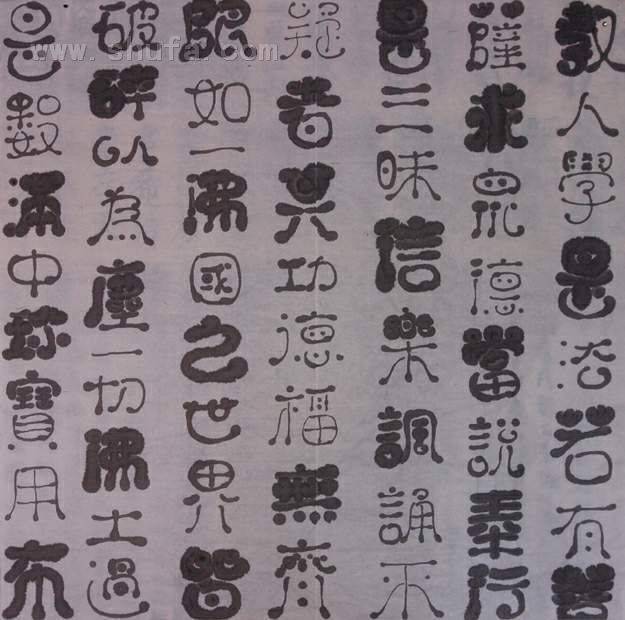 教人學是法若有菩
薩求眾德當說奉行
是三昧信樂諷誦不
疑者其功德福無齊
限如一佛國之世界皆
破碎以為塵一切佛土過
是數滿中珍寶用布
www.shufa.com